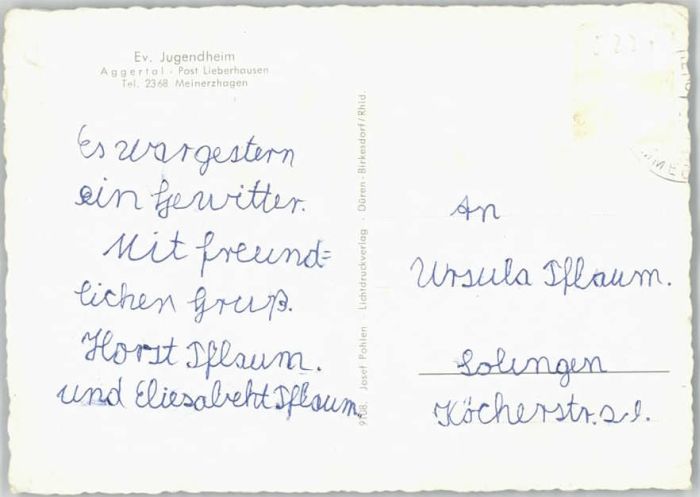 Ev. Jugendheim
Aggertal - Post Lieberhausen
Tel. 2368 Meinerzhagen
Es war gestern
ein Gewitter.
Mit freund=
lichen Gruß.
Horst Pflaum.
und Eliesabeht Pflaum.
9708. Josef Pohlen Lichtdruckverlag - Düren-Birkesdorf/Rhld.
An
Ursula Pflaum.
Solingen
Köcherstr.